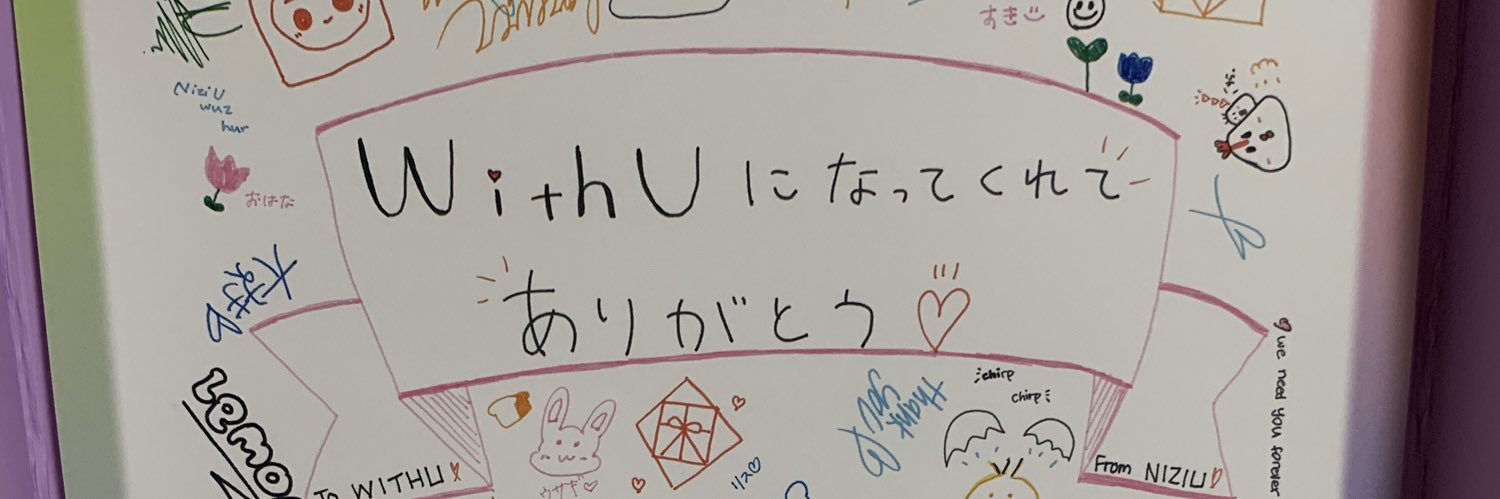 すき
NiziU
wuz
hur
おはな
WithUになってくれて
ありがとう♡
大好き
LEMO
To WITHU
ウサギ♡
1/20♡
Thank
you
chirp
chirp
From NIZIU
♡ we need you forever